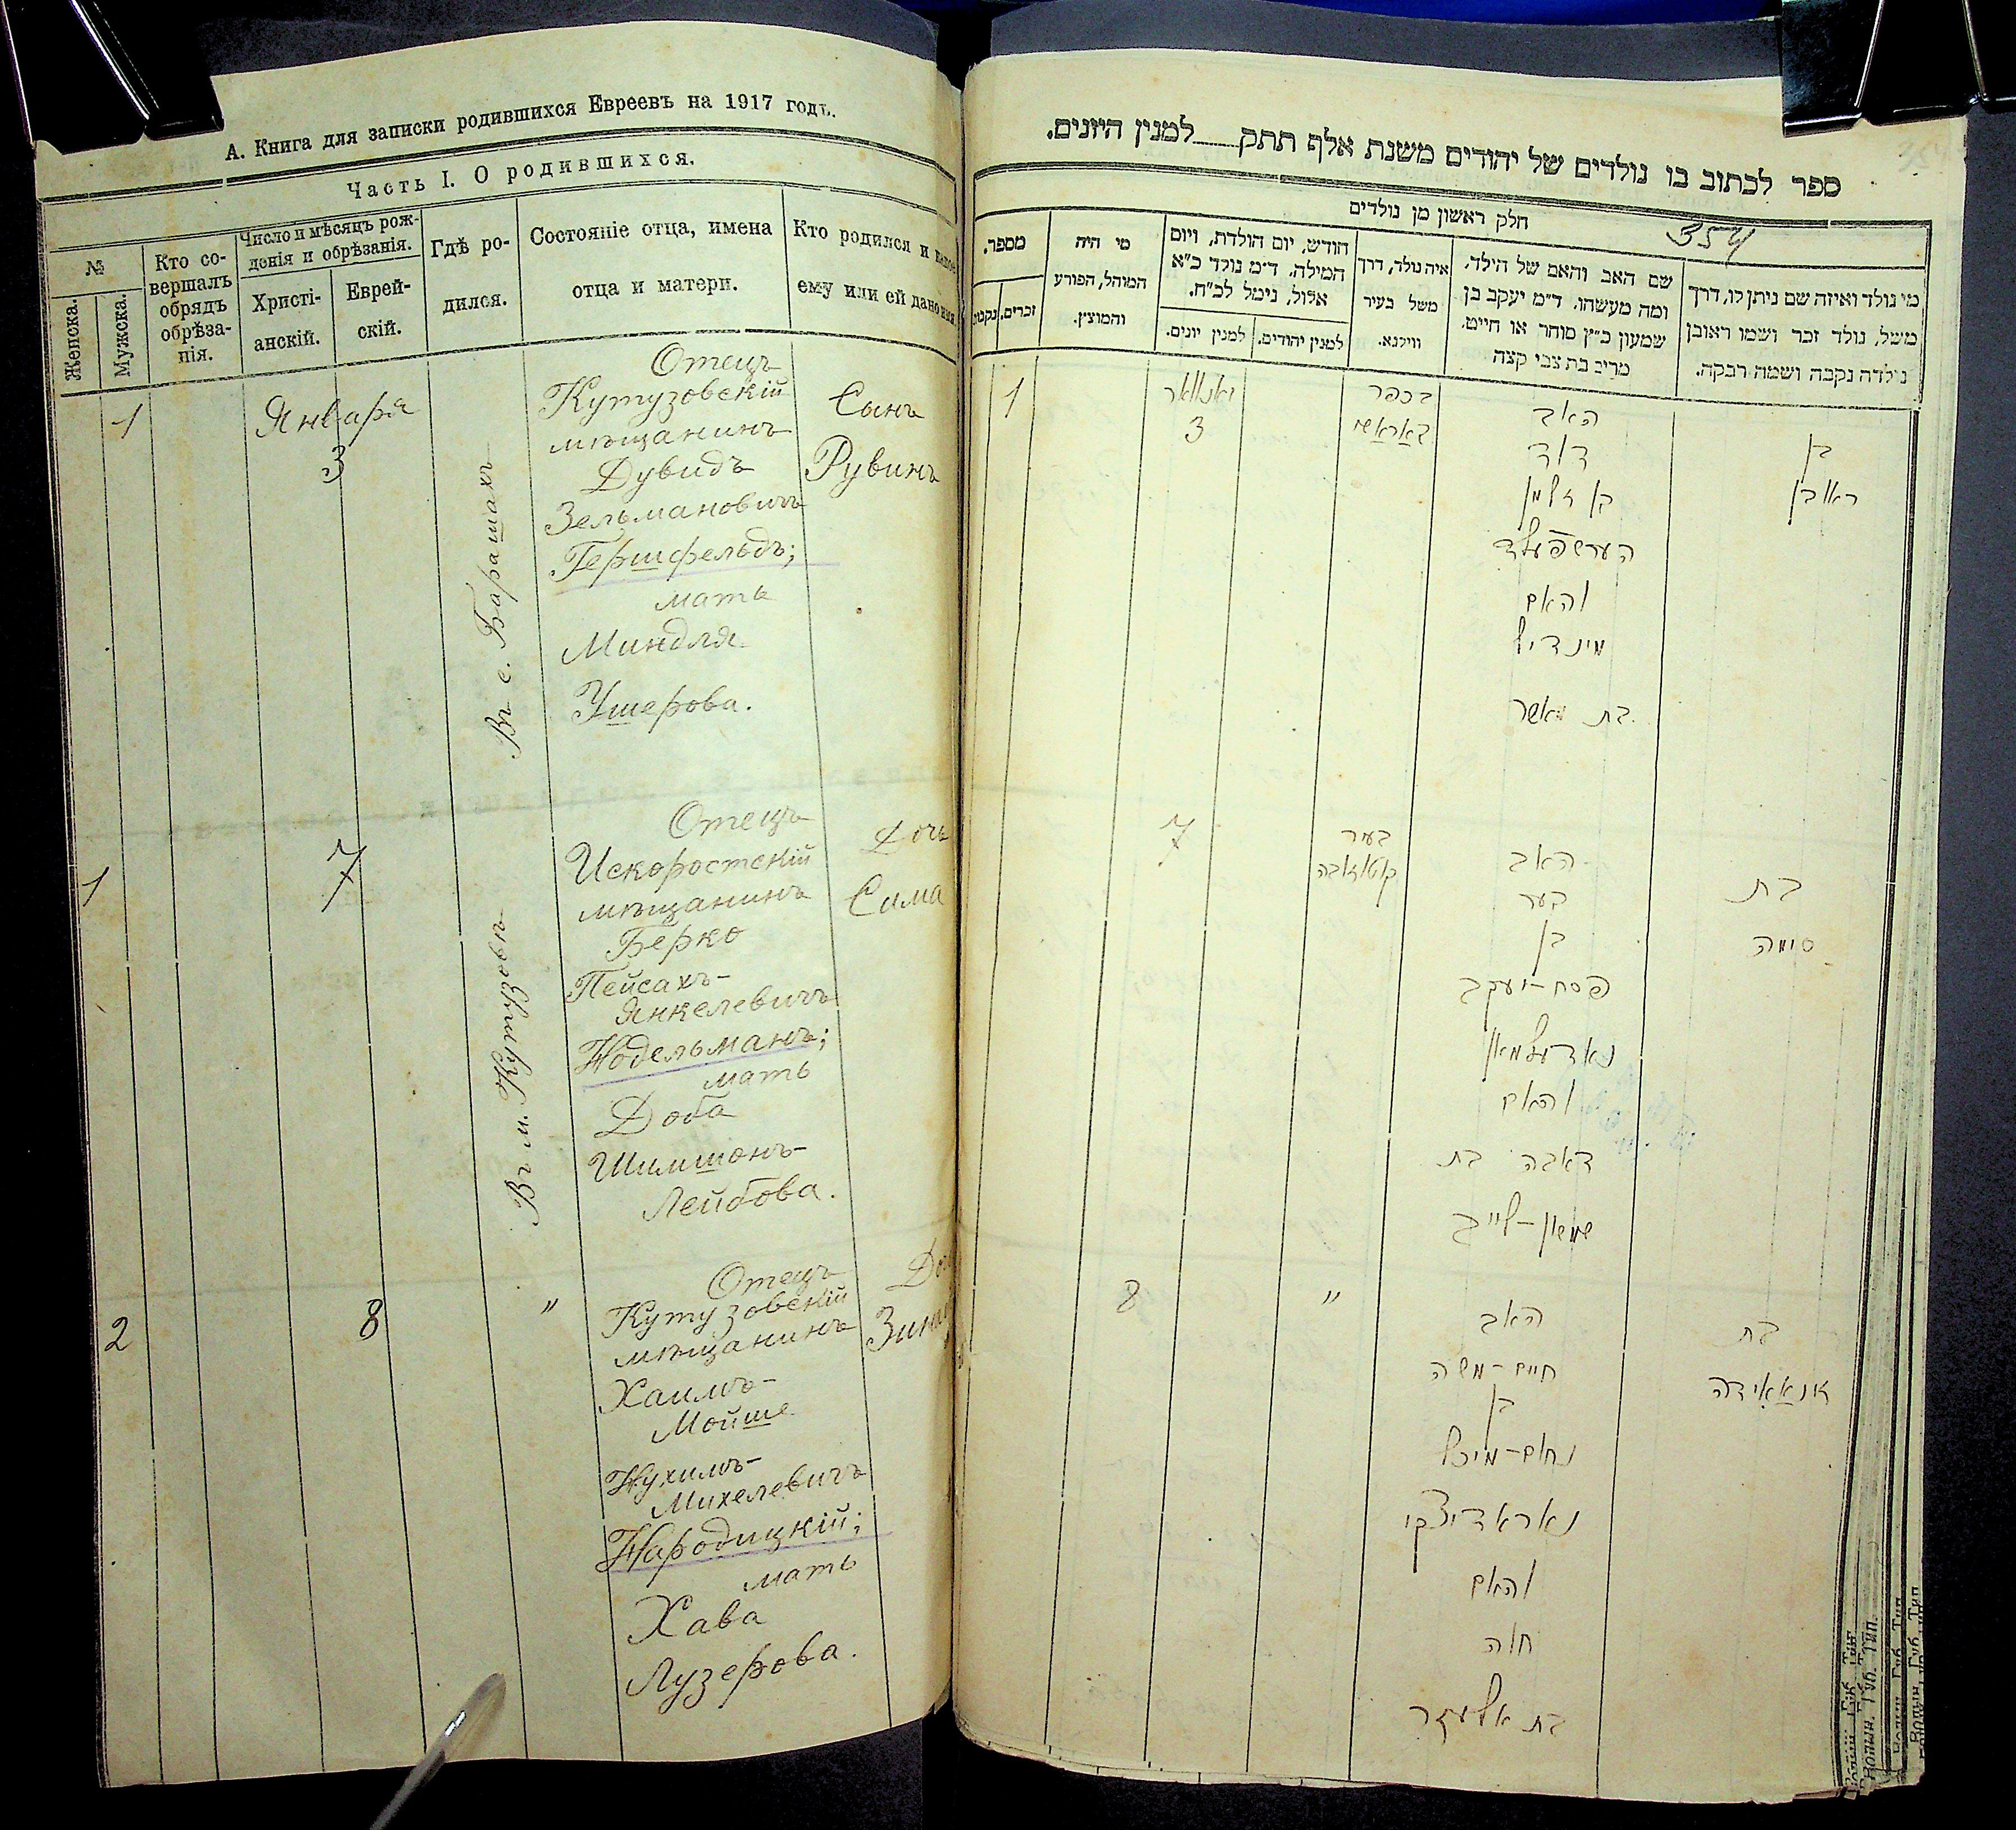 А. Книга для записки родившихся Евреевъ на 1917 годъ.
Часть I. О родившихся.
№
Женска.
Мужска.
Кто со-
вершалъ
обрядъ
обрѣза-
нія.
Число и мѣсяцъ рож-
денія и обрѣзанія.
Христі-
анскій.
Еврей-
скій.
Гдѣ ро-
дился.
Состояніе отца, имена
отца и матери.
Кто родился и какое
ему или ей дано имя
1
Января
3
Въ с. Барашахъ
Отецъ
Кутузовскій
мѣщанинъ
Дувидъ
Зельмановичъ
Гершфельдъ;
мать
Миндля
Ушерова.
Сынъ
Рувинъ
1
7
Въ м. Кутузовѣ
Отецъ
Искоростскій
мѣщанинъ
Берко
Пейсахъ-
Янкелевичъ
Нодельманъ;
мать
Доба
Шимшонъ-
Лейбова.
Дочь
Сима
2
8
"
Отецъ
Кутузовскій
мѣщанинъ
Хаимъ-
Мойше
Нухимъ-
Михелевичъ
Народицкій;
мать
Хава
Лузерова.
ספר לכתוב בו נולדים של יהודים משנת אלף תתק למנין היונים.
חלק ראשון מן נולדים
354
מי נולד ואיזה שם ניתן לו, דרך
משל, נולד זכר ושמו ראובן
נולדה נקבה ושמה רבקה.
שם האב והאם של הילד,
ומה מעשהו. ד"מ יעקב בן
שמעון כ"ץ סוחר או חייט.
מרים בת צבי קצה
איה נולד, דרך
משל בעיר
ווילנא.
חודש, יום הולדת, ויום
המילה, ד"מ נולד כ"א
אלול, נימל לכ"ח.
למנין יהודים.
למנין יונים.
מי היה
המוהל, הפורע
והמוצץ.
מספר.
זכרים.
נקבות
בן
ראובן
האב
דוד
בן זלמן
הערשפעלד
והאם
מינדיל
בת אשר
בכפר
באראשי
יאנואר
3
1
בת
סימה
האב
בער
בן
פסח-יעקב
נאדעלמאן
והאם
דאבה בת
שמשון-לייב
בעיר
קוטוזובה
7
בת
זינאאידה
האב
חיים-משה
בן
נחום-מיכל
נאראדיצקי
והאם
חוה
בת אלעזר
"
8